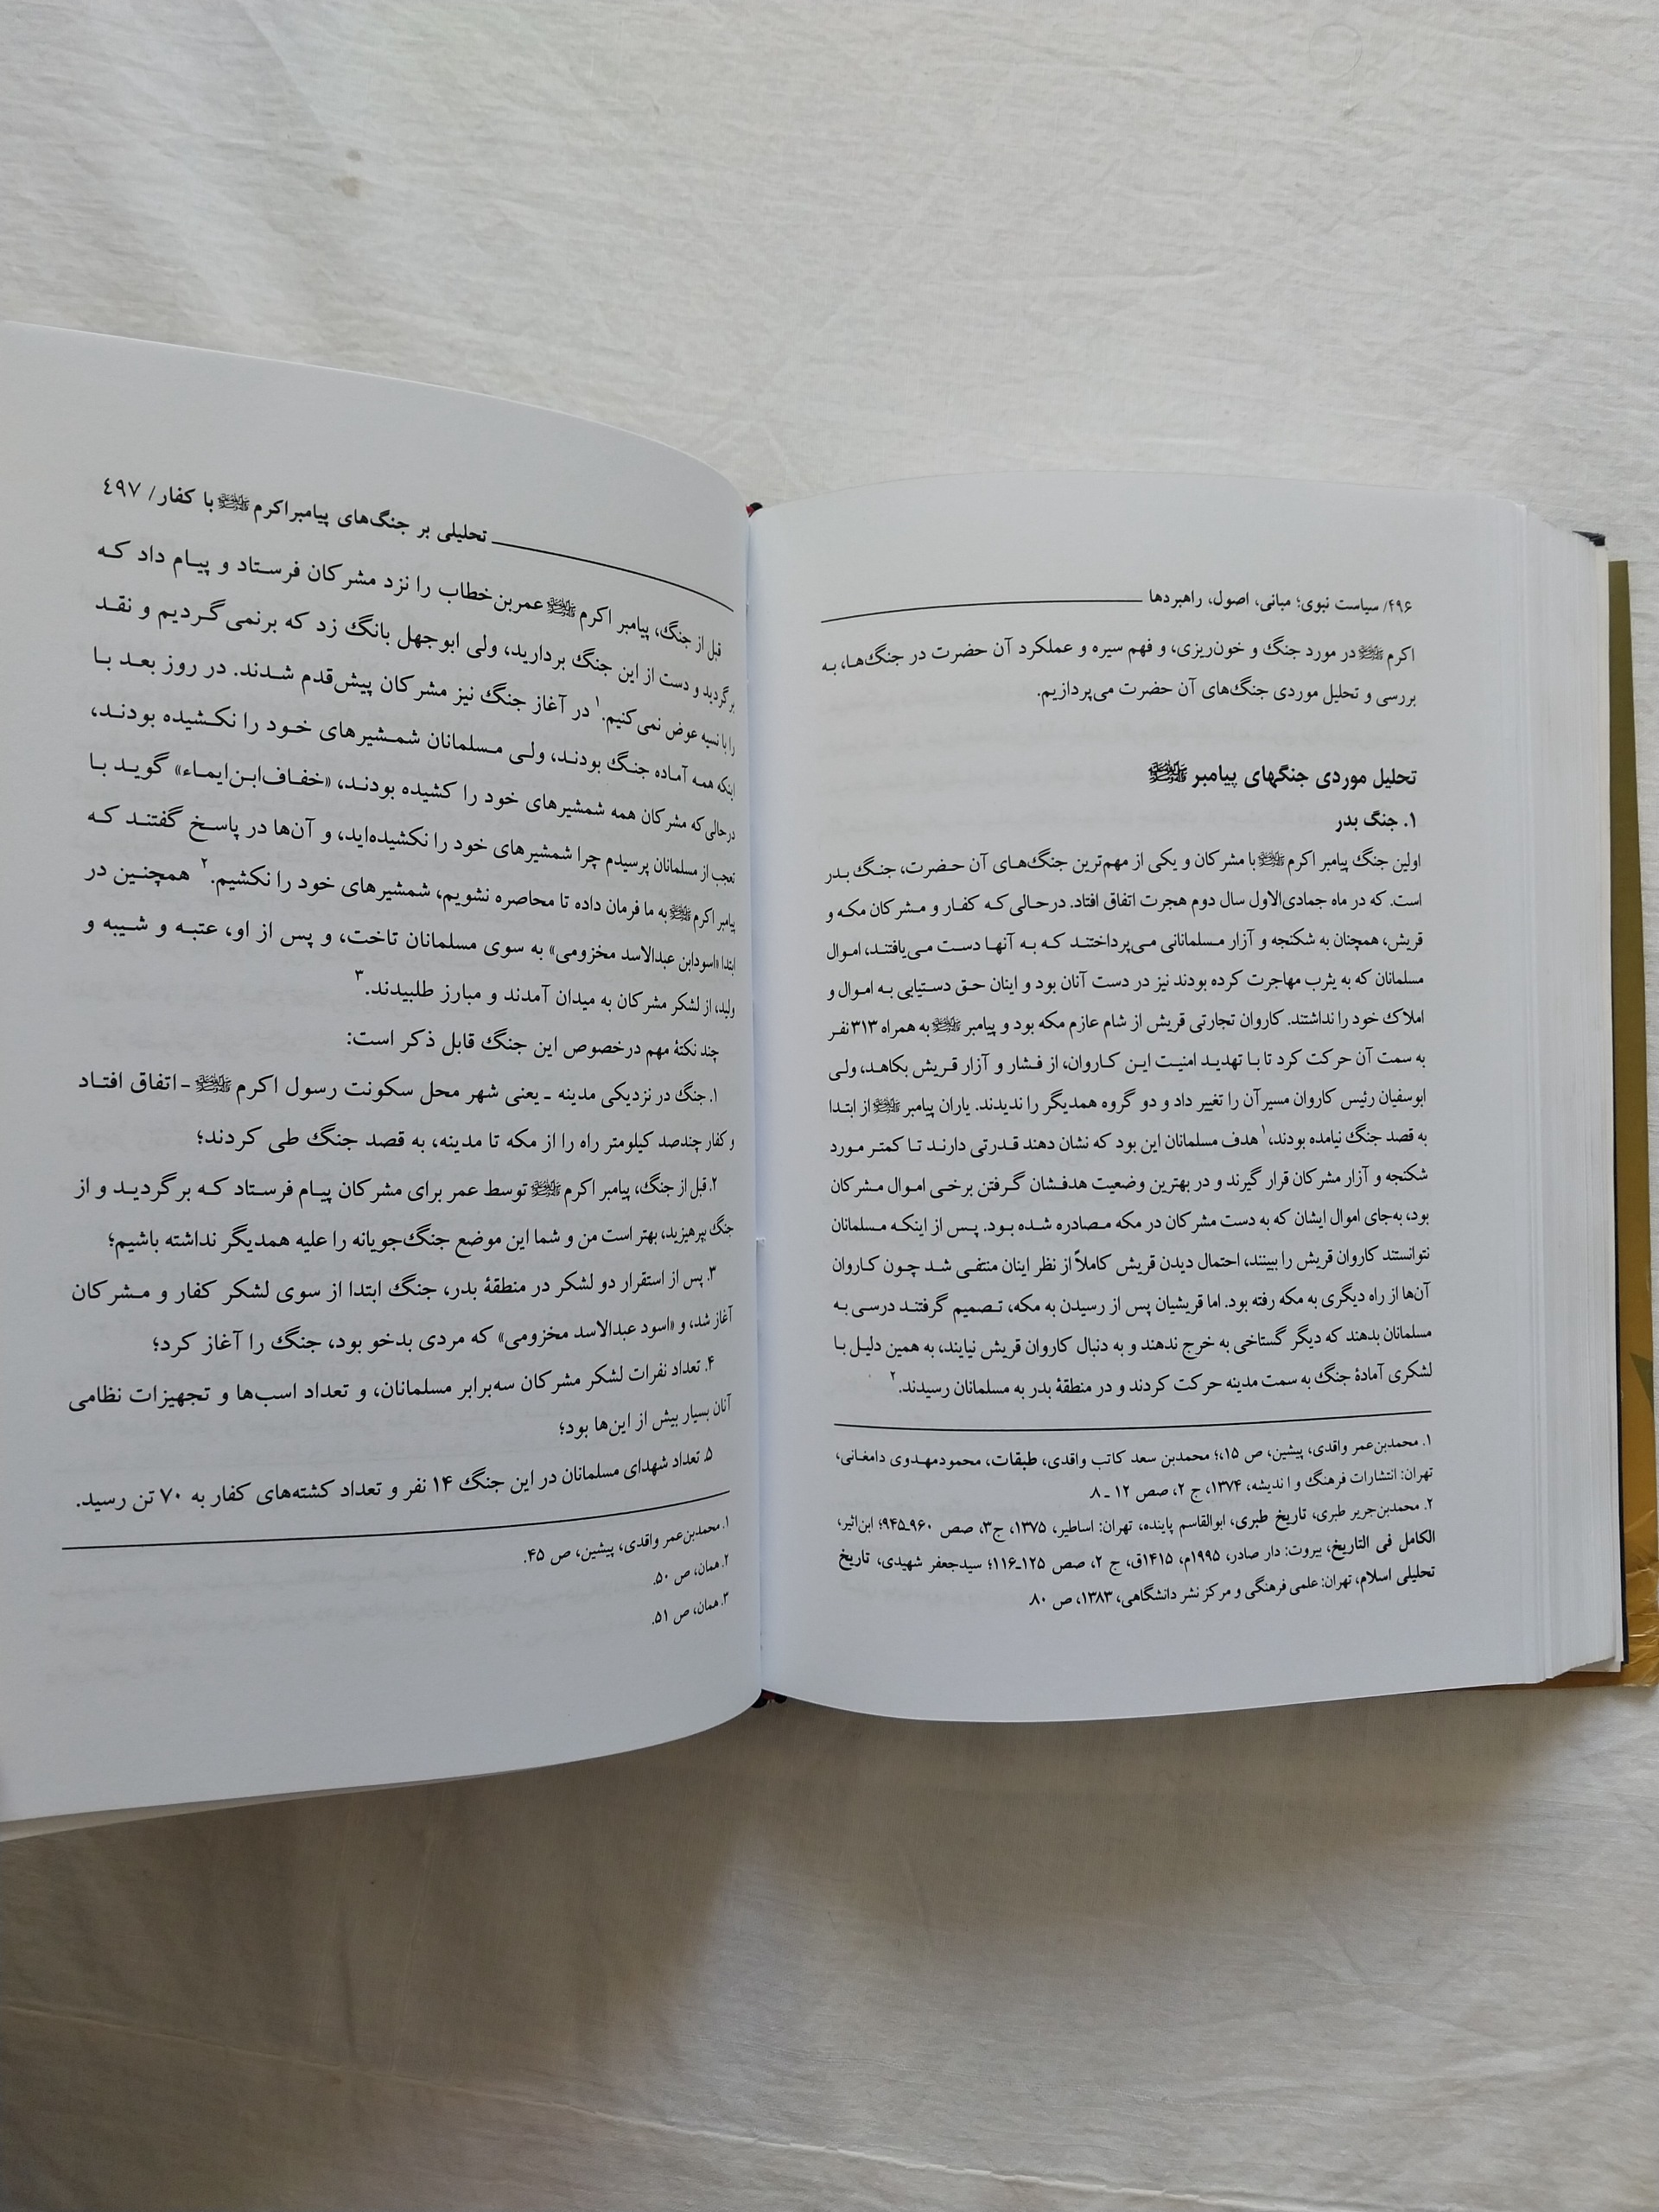 ۴۹۶/ سیاست نبوی؛ مبانی، اصول، راهبردها
اکرم ﷺ در مورد جنگ و خون‌ریزی، و فهم سیره و عملکرد آن حضرت در جنگ‌ها، به
بررسی و تحلیل موردی جنگ‌های آن حضرت می‌پردازیم.
تحلیل موردی جنگهای پیامبر ﷺ
۱. جنگ بدر
اولین جنگ پیامبر اکرم ﷺ با مشرکان و یکی از مهم‌ترین جنگ‌های آن حضرت، جنگ بدر
است. که در ماه جمادی‌الاول سال دوم هجرت اتفاق افتاد. درحالی‌که کفار و مشرکان مکه و
قریش، همچنان به شکنجه و آزار مسلمانانی می‌پرداختند که به آنها دست می‌یافتند، اموال
مسلمانان که به یثرب مهاجرت کرده بودند نیز در دست آنان بود و اینان حق دستیابی به اموال و
املاک خود را نداشتند. کاروان تجارتی قریش از شام عازم مکه بود و پیامبر ﷺ به همراه ۳۱۳ نفر
به سمت آن حرکت کرد تا با تهدید امنیت این کاروان، از فشار و آزار قریش بکاهد، ولی
ابوسفیان رئیس کاروان مسیر آن را تغییر داد و دو گروه همدیگر را ندیدند. یاران پیامبر ﷺ از ابتدا
به قصد جنگ نیامده بودند،۱ هدف مسلمانان این بود که نشان دهند قدرتی دارند تا کمتر مورد
شکنجه و آزار مشرکان قرار گیرند و در بهترین وضعیت هدفشان گرفتن برخی اموال مشرکان
بود، به‌جای اموال ایشان که به دست مشرکان در مکه مصادره شده بود. پس از اینکه مسلمانان
نتوانستند کاروان قریش را ببینند، احتمال دیدن قریش کاملاً از نظر اینان منتفی شد چون کاروان
آن‌ها از راه دیگری به مکه رفته بود. اما قریشیان پس از رسیدن به مکه، تصمیم گرفتند درسی به
مسلمانان بدهند که دیگر گستاخی به خرج ندهند و به دنبال کاروان قریش نیایند، به همین دلیل با
لشکری آمادهٔ جنگ به سمت مدینه حرکت کردند و در منطقهٔ بدر به مسلمانان رسیدند.۲
۱. محمدبن‌عمر واقدی، پیشین، ص ۱۵،؛ محمدبن سعد کاتب واقدی، طبقات، محمودمهدوی دامغانی،
تهران: انتشارات فرهنگ و اندیشه، ۱۳۷۴، ج ۲، صص ۱۲ ـ ۸.
۲. محمدبن‌جریر طبری، تاریخ طبری، ابوالقاسم پاینده، تهران: اساطیر، ۱۳۷۵، ج۳، صص ۹۶۰ـ۹۴۵؛ ابن‌اثیر،
الکامل فی التاریخ، بیروت: دار صادر، ۱۹۹۵م، ۱۴۱۵ق، ج ۲، صص ۱۲۵ـ۱۱۶؛ سیدجعفر شهیدی، تاریخ
تحلیلی اسلام، تهران: علمی فرهنگی و مرکز نشر دانشگاهی، ۱۳۸۳، ص ۸۰.
تحلیلی بر جنگ‌های پیامبراکرم ﷺ با کفار/ ۴۹۷
قبل از جنگ، پیامبر اکرم ﷺ عمربن‌خطاب را نزد مشرکان فرستاد و پیام داد که
برگردید و دست از این جنگ بردارید، ولی ابوجهل بانگ زد که برنمی‌گردیم و نقد
را با نسیه عوض نمی‌کنیم.۱ در آغاز جنگ نیز مشرکان پیش‌قدم شدند. در روز بعد با
اینکه همه آماده جنگ بودند، ولی مسلمانان شمشیرهای خود را نکشیده بودند،
درحالی‌که مشرکان همه شمشیرهای خود را کشیده بودند، «خفاف‌ابن‌ایماء» گوید با
تعجب از مسلمانان پرسیدم چرا شمشیرهای خود را نکشیده‌اید، و آن‌ها در پاسخ گفتند که
پیامبر اکرم ﷺ به ما فرمان داده تا محاصره نشویم، شمشیرهای خود را نکشیم.۲ همچنین در
ابتدا «اسودابن عبدالاسد مخزومی» به سوی مسلمانان تاخت، و پس از او، عتبه و شیبه و
ولید، از لشکر مشرکان به میدان آمدند و مبارز طلبیدند.۳
چند نکتهٔ مهم درخصوص این جنگ قابل ذکر است:
۱. جنگ در نزدیکی مدینه ـ یعنی شهر محل سکونت رسول اکرم ﷺ - اتفاق افتاد
و کفار چندصد کیلومتر راه را از مکه تا مدینه، به قصد جنگ طی کردند؛
۲. قبل از جنگ، پیامبر اکرم ﷺ توسط عمر برای مشرکان پیام فرستاد که برگردید و از
جنگ بپرهیزید، بهتر است من و شما این موضع جنگ‌جویانه را علیه همدیگر نداشته باشیم؛
۳. پس از استقرار دو لشکر در منطقهٔ بدر، جنگ ابتدا از سوی لشکر کفار و مشرکان
آغاز شد، و «اسود عبدالاسد مخزومی» که مردی بدخو بود، جنگ را آغاز کرد؛
۴. تعداد نفرات لشکر مشرکان سه‌برابر مسلمانان، و تعداد اسب‌ها و تجهیزات نظامی
آنان بسیار بیش از این‌ها بود؛
۵. تعداد شهدای مسلمانان در این جنگ ۱۴ نفر و تعداد کشته‌های کفار به ۷۰ تن رسید.
۱. محمدبن‌عمر واقدی، پیشین، ص ۴۵.
۲. همان، ص ۵۰.
۳. همان، ص ۵۱.